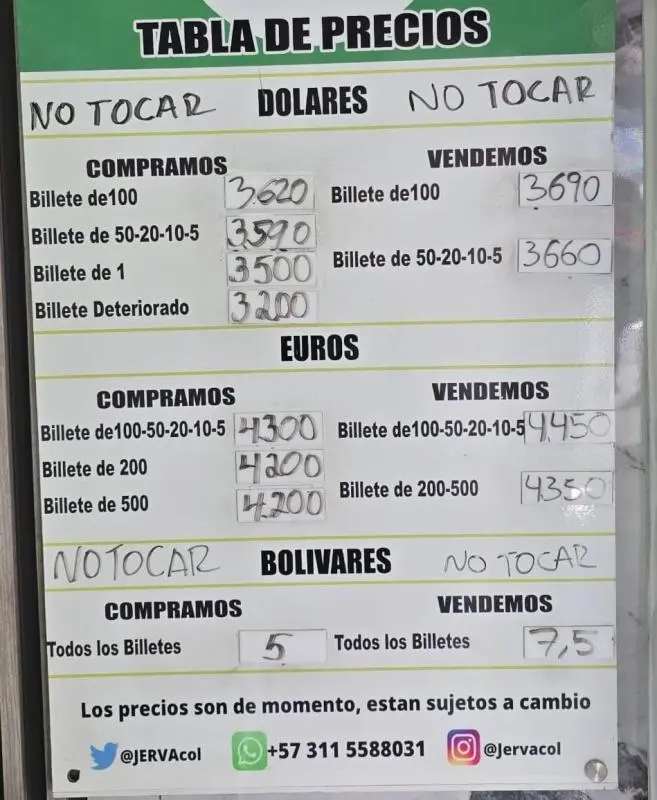 TABLA DE PRECIOS
NO TOCAR DOLARES NO TOCAR
COMPRAMOS VENDEMOS
Billete de100 3.620 Billete de100 3690
Billete de 50-20-10-5 3.590 Billete de 50-20-10-5 3660
Billete de 1 3500
Billete Deteriorado 3200
EUROS
COMPRAMOS VENDEMOS
Billete de100-50-20-10-5 4300 Billete de100-50-20-10-5 4.450
Billete de 200 4200 Billete de 200-500 4350
Billete de 500 4.200
NO TOCAR BOLIVARES NO TOCAR
COMPRAMOS VENDEMOS
Todos los Billetes 5 Todos los Billetes 7,5
Los precios son de momento, estan sujetos a cambio
@JERVAcol +57 311 5588031 @Jervacol